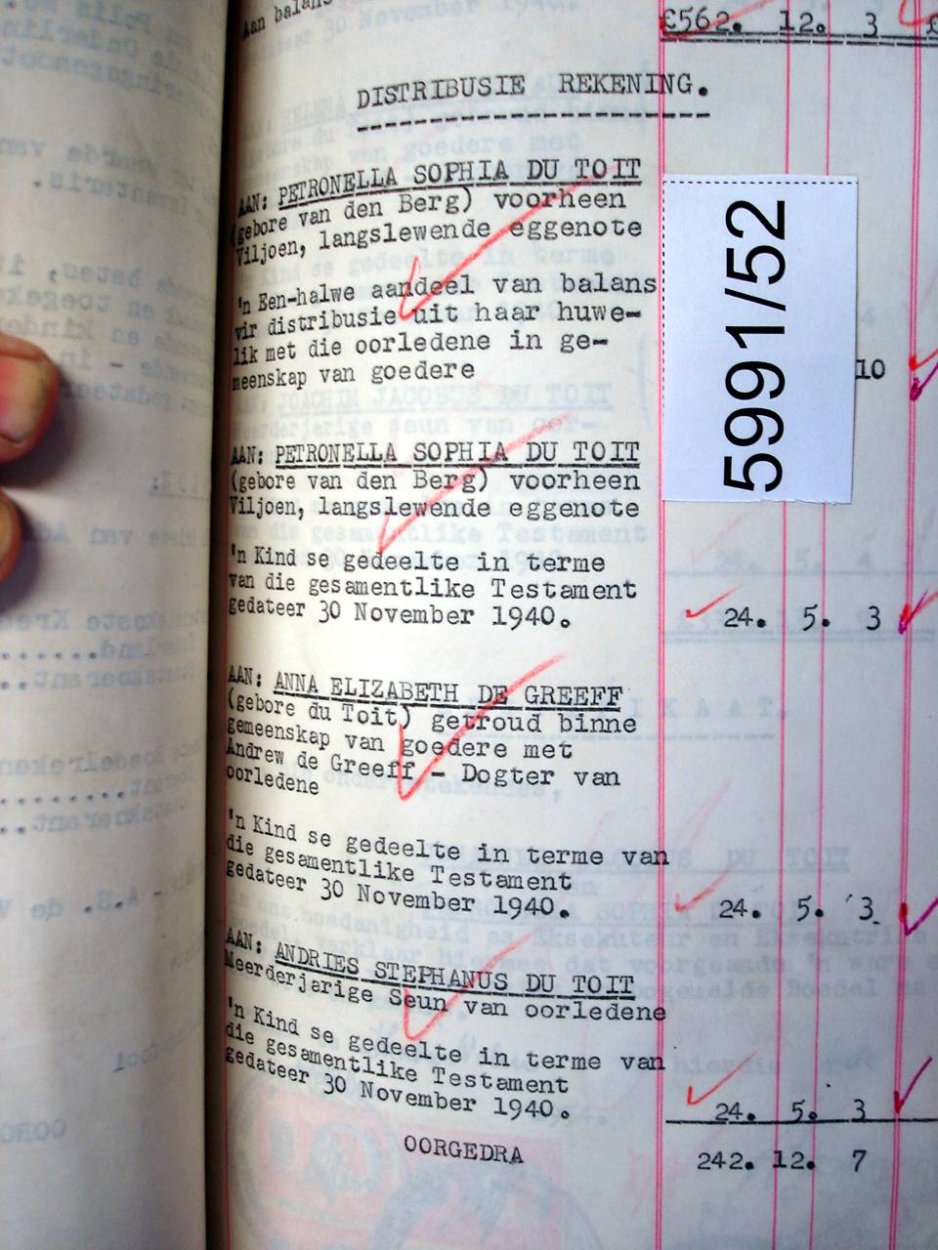 Aan balans
£562. 12. 3
DISTRIBUSIE REKENING.
AAN: PETRONELLA SOPHIA DU TOIT
(gebore van den Berg) voorheen
Viljoen, langslewende eggenote
'n Een-halwe aandeel van balans
vir distribusie uit haar huwe-
lik met die oorledene in ge-
meenskap van goedere
10
5991/52
AAN: PETRONELLA SOPHIA DU TOIT
(gebore van den Berg) voorheen
Viljoen, langslewende eggenote
'n Kind se gedeelte in terme
van die gesamentlike Testament
gedateer 30 November 1940. 24. 5. 3
AAN: ANNA ELIZABETH DE GREEFF
(gebore du Toit) getroud binne
gemeenskap van goedere met
Andrew de Greeff - Dogter van
oorledene
'n Kind se gedeelte in terme van
die gesamentlike Testament
gedateer 30 November 1940. 24. 5. 3
AAN: ANDRIES STEPHANUS DU TOIT
Meerderjarige Seun van oorledene
'n Kind se gedeelte in terme van
die gesamentlike Testament
gedateer 30 November 1940. 24. 5. 3
OORGEDRA 242. 12. 7